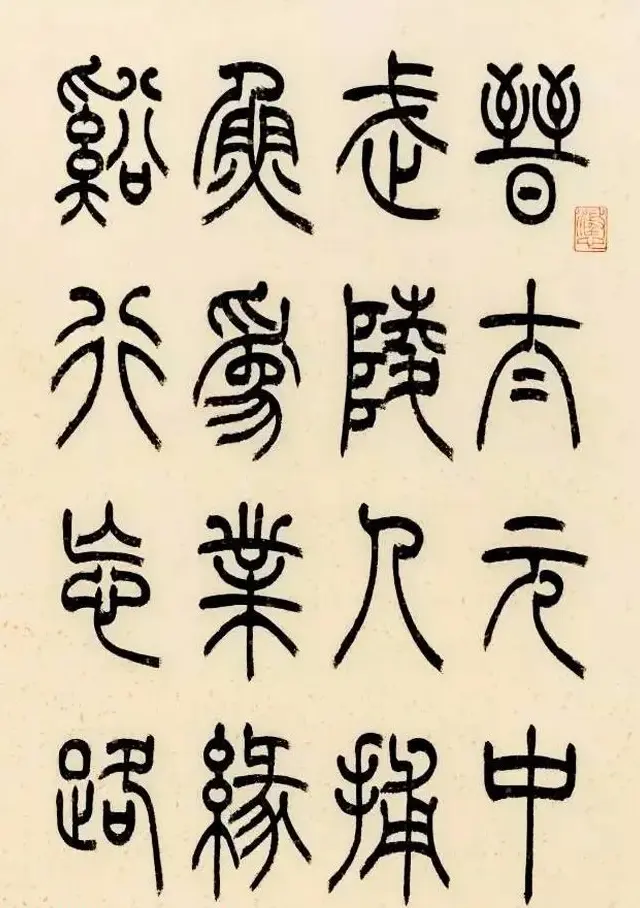 晉太元中
武陵人捕
魚為業緣
谿行忘路